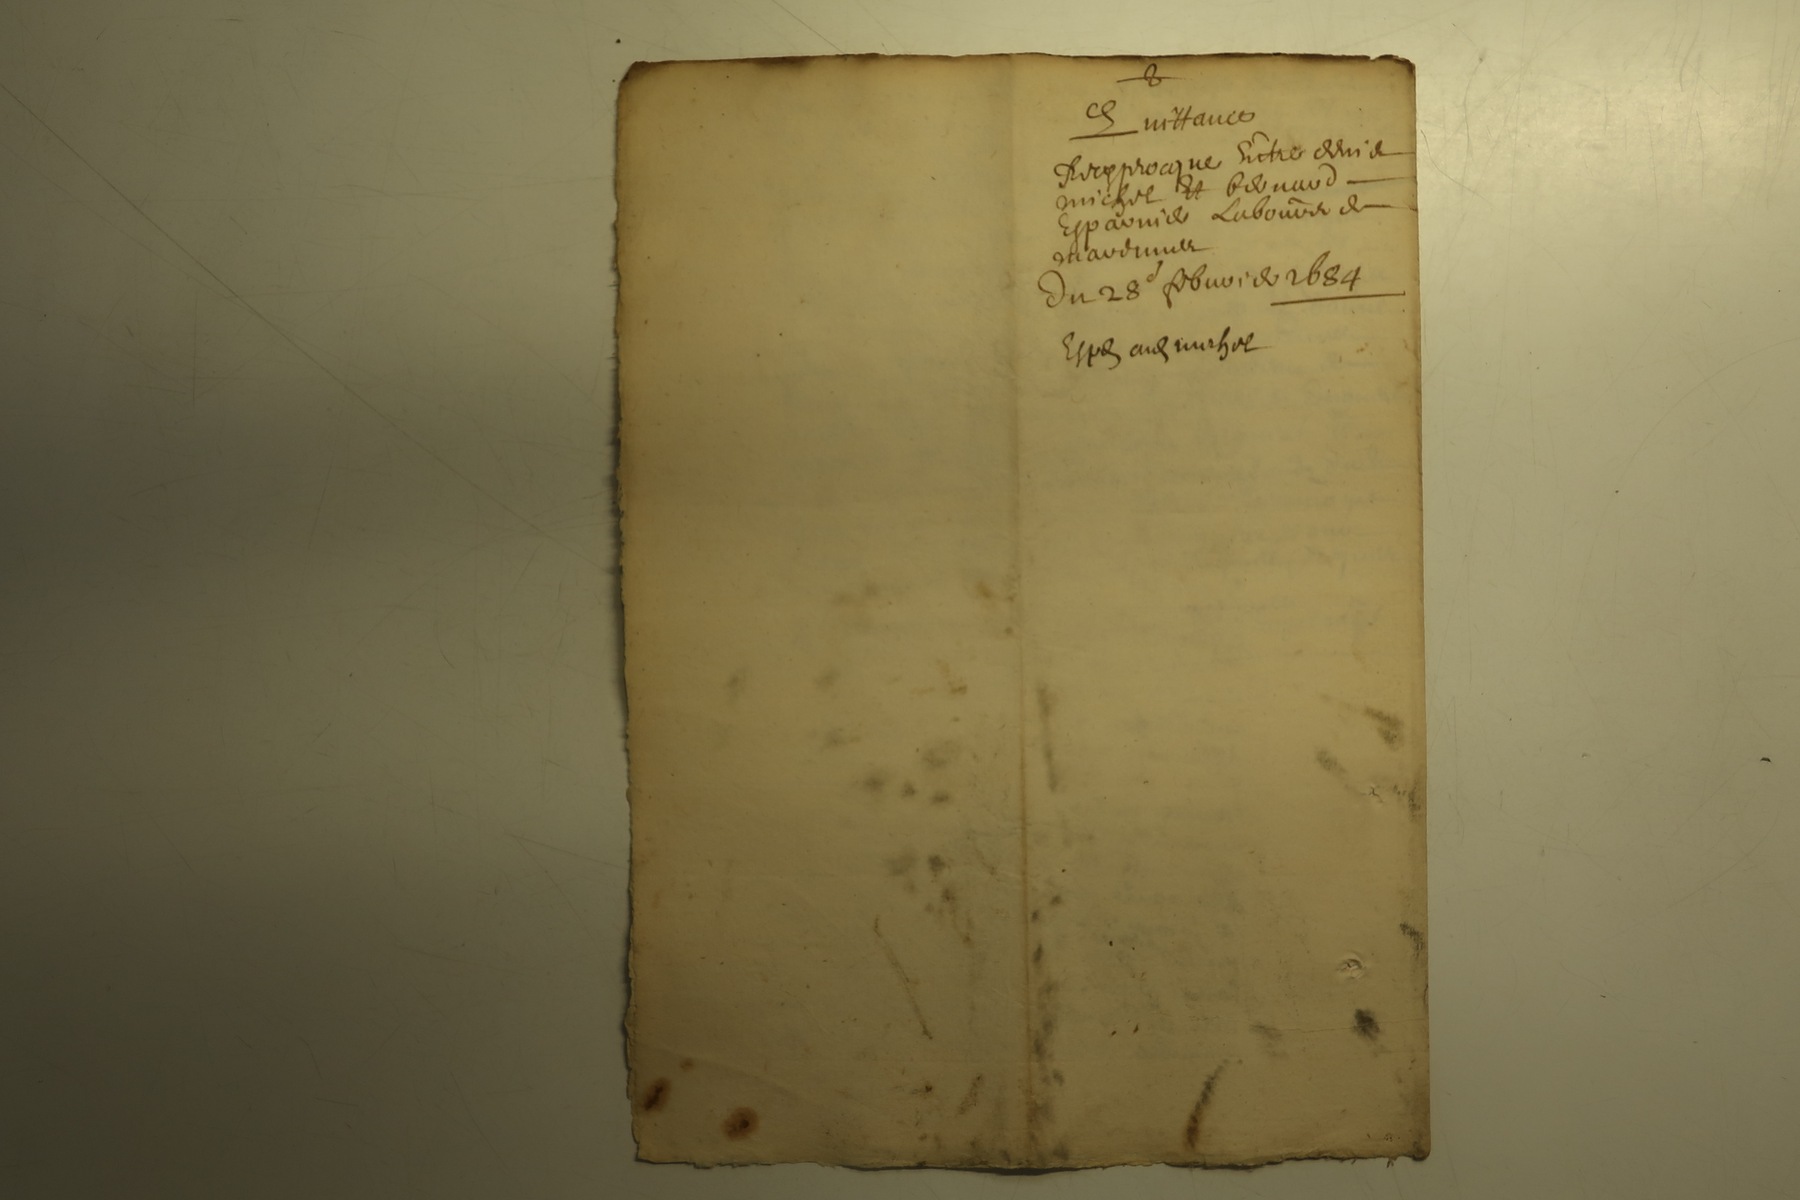 8
Quittance
Recyprocque Entre denis
michel Et bernard
Esparnier Laboure de
mardeuille
Du 28e febvrier 1684
Expé aud michel